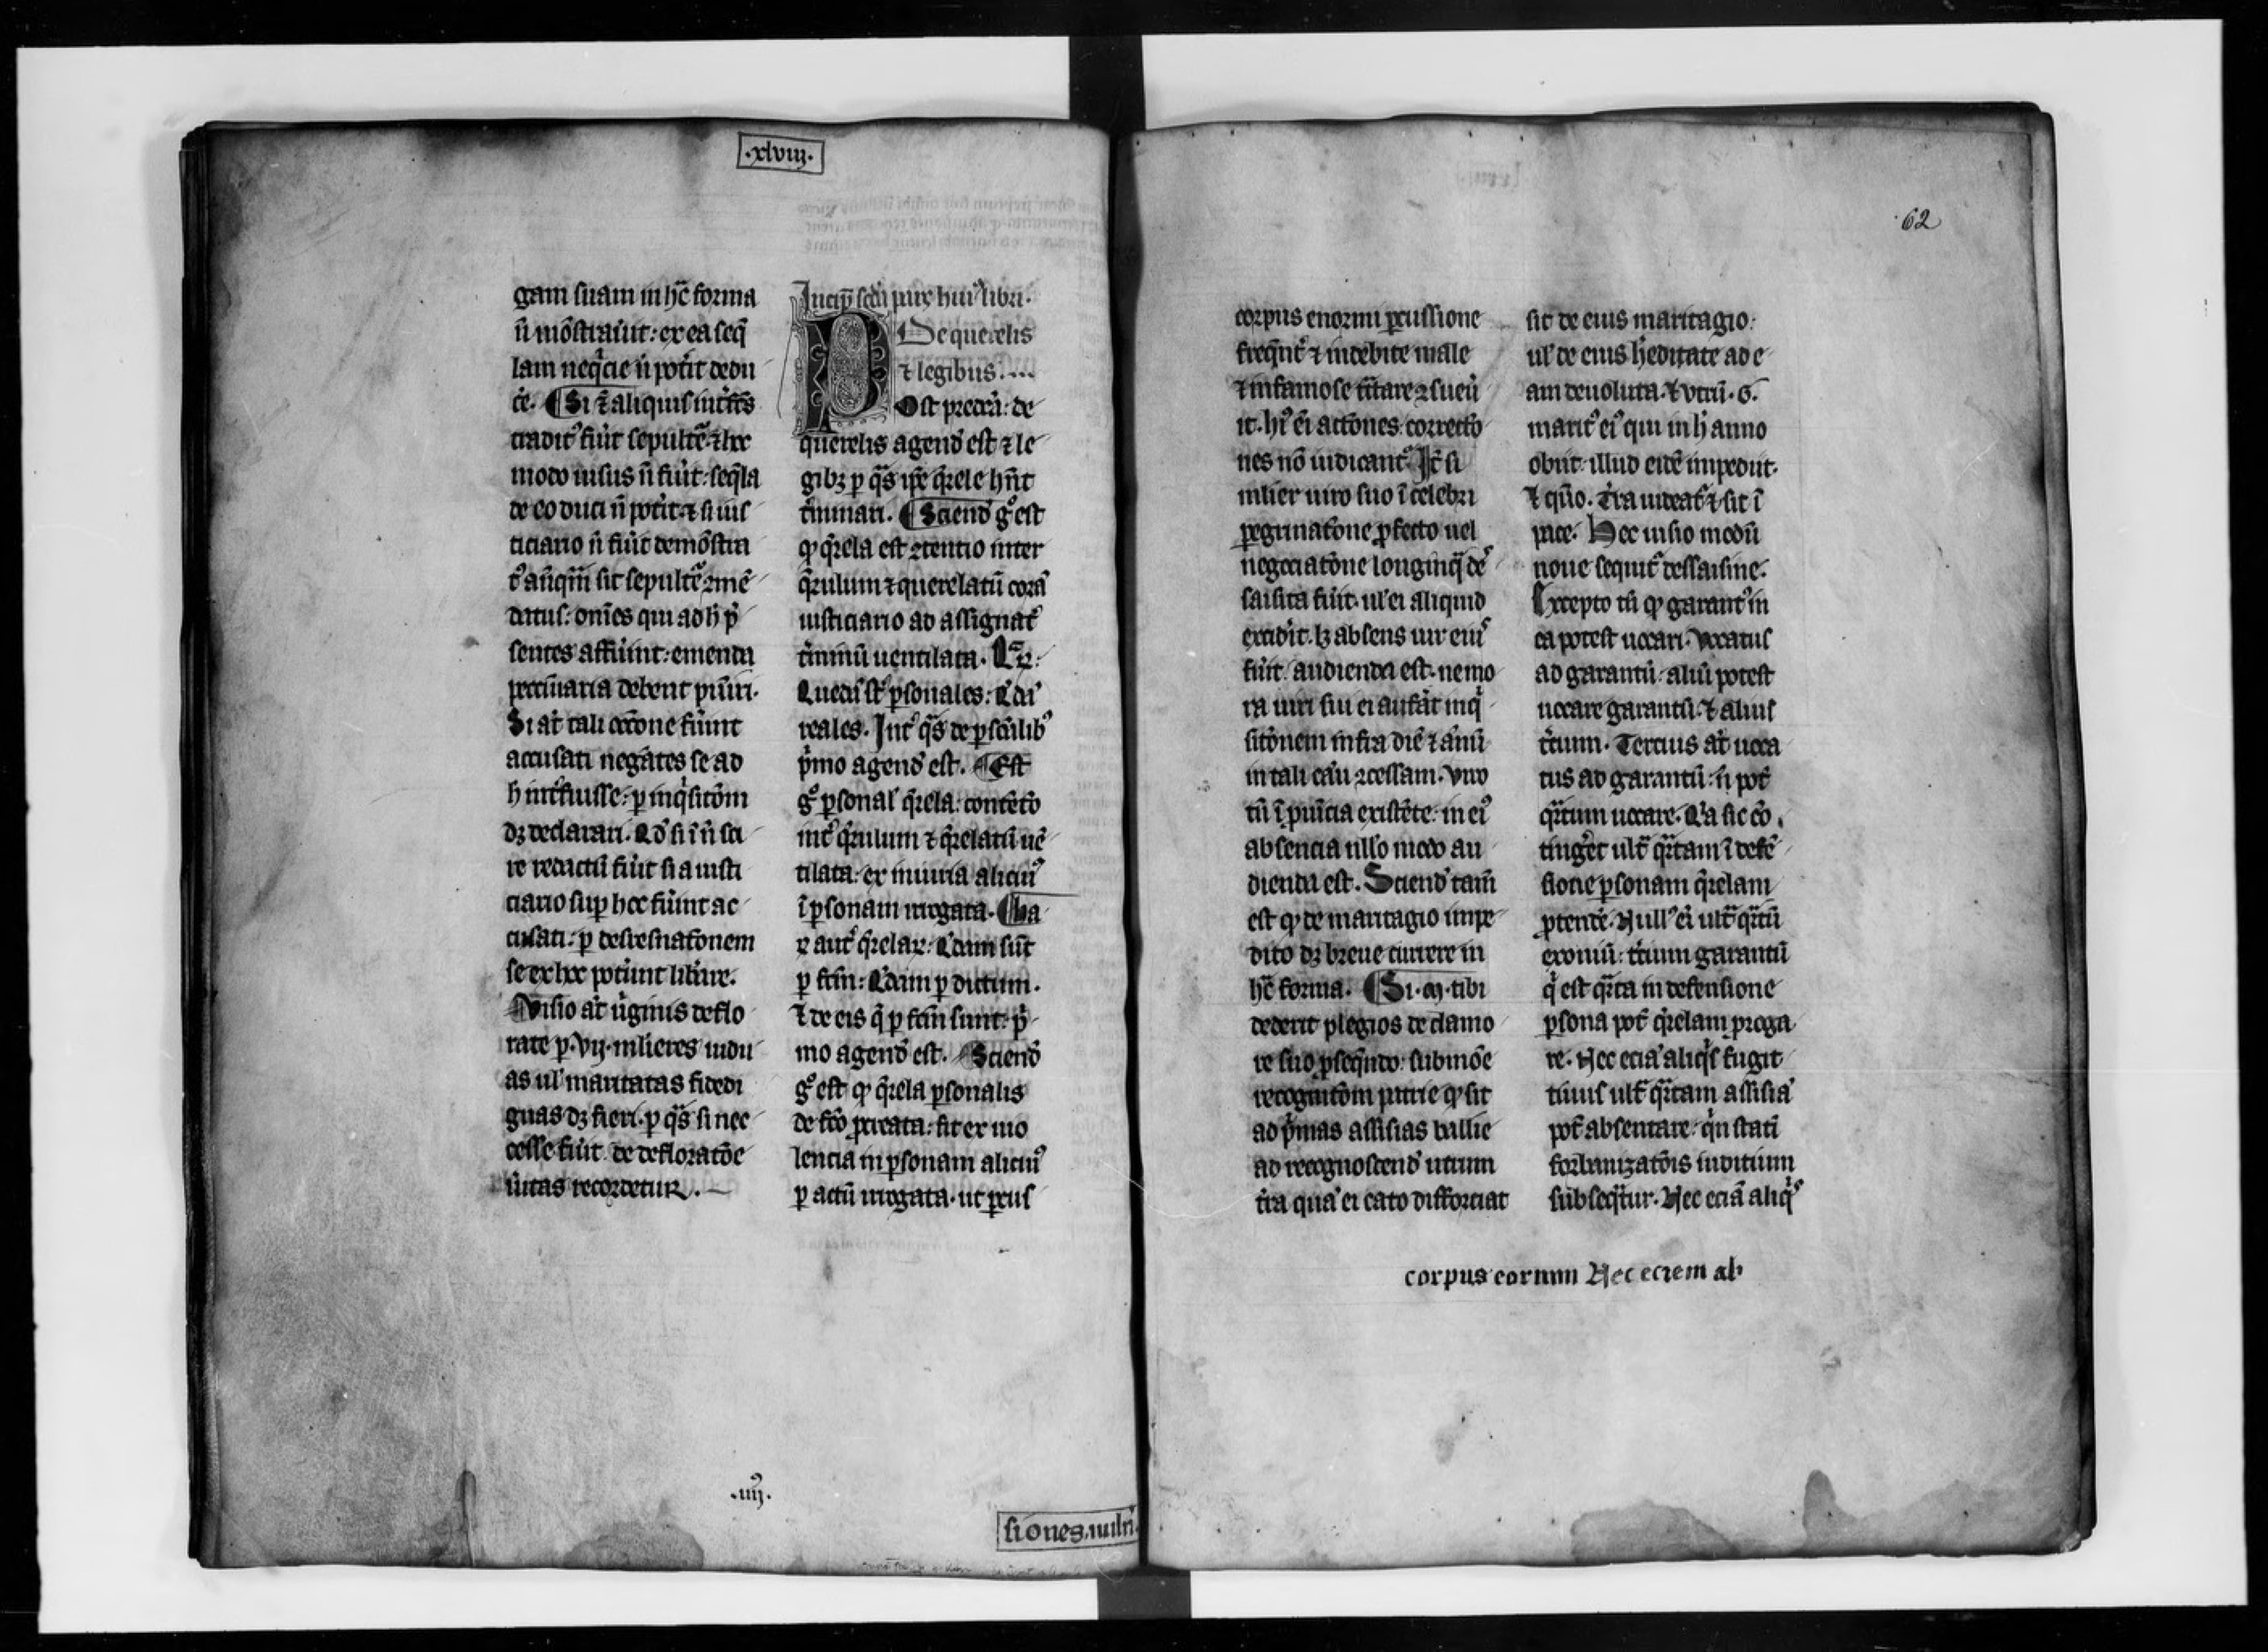 .xlviij.
gam suam in hc̄ forma
n̄ mōstraưit: ex ea seq̄
lam neq̄cie n̄ potit dedu
ce. Si
tradit fuit sepulte
modo uisus n̄ fuit: seq̄la
de eo duci n̄ potit. et si ius
ticiario n̄ fuit demōstra
sit sepulte
ditus: om̄es qui ad h̄ p̄
sentes affuint: emenda
peccuniaria debent puniri.
Si at tali occōne fuint
accusati negātes se ad
h int̄fuisse: p inq̄sitōm
dꝫ declarari. Qd si
re redactū fuit si a iusti
ciario sup hoc fuint ac
cusati: p desresnatōnem
se ex hoc potunt libare.
Visio at uginis deflo
rate p .vij. mlieres uidu
as ul maritatas fidedi
gnas dꝫ fieri. p q̄s si nec
cesse fuit de defloratōe
ūitas recordetur.
Incip̄ scda pars hui libri.
De querelis
⁊ legibus.
Post : de
querelis agend est ⁊ le
gibꝫ p q̄s ip̄e q̄rele hn̄t
t̄minari. Sciend g° est
ꝙ q̄rela est ꝯtentio inter
q̄rulum ⁊ querelatū corā
iusticiario ad assignat
t̄minū uentilata.
Quedā st psonales: Qdā
reales. Int q̄s de psonalib
p̄mo agend est. Est
g° psonal q̄rela: contētō
int q̄rulum ⁊ q̄relatū uē
tilata: ex iniuria alicui
ī psonam irrogata. Ha
ꝝ aut q̄relaꝝ: Qdam sūt
p fcm: Qdam p dictum.
⁊ de eis q̄ p fcm sunt: p̄
mo agend est. Sciend
g° est ꝙ q̄rela psonalis
de fcō procreata: fit ex uio
lencia in psonam alicui
p actū irrogata. ut peus
.iiij.
siones.
62
corpus enormi pcussione
freq̄nt ⁊ indebite male
⁊ infamose tractare ꝯsueu
it. hi ei actōnes correctō
nes nō iudicant. Itē si
mlier uiro suo ī celebri
pegrinatōne pfecto uel
negociatōne longinq̄ de
saisita fuit. ul ei aliquid
exciderit. lꝫ absens uir eius
fuit: audienda est. ne mo
ra uiri sui ei auferat inq̄
sitōnem infra diē ⁊ annū
in tali casu ꝯcessam. Viro
tn̄ ī puincia existēte: in ei
absencia nullo modo au
dienda est. Sciend tam̄
est ꝙ de maritagio impe
dito dꝫ breue currere in
hc̄ forma. Si .m. tibi
dederit plegios de clamo
re suo p̄seq̄ndo: submōe
recognitōm patrie ꝙ sit
ad p̄mas assisias ballie
ad recognoscend utrum
t̄ra quā ei cato difforciat
sit de eius maritagio:
ul de eius h̄editate ad e
am deuoluta. ⁊ vtrū .G.
marit ei qui in h anno
obiit: illud eidē impedit.
⁊ quō. Tra uideat ⁊ sit ī
pace. Hec uisio modū
noue sequit dessaisine.
Excepto tn̄ ꝙ garant in
ea potest uocari. Vocatus
ad garantū: aliū potest
uocare garantū. ⁊ alius
tcium. Tercius at uoca
tus ad garantū: n̄ pot
q̄rtum uocare. Qa sic cō
tinget ult q̄rtam ī defē
sione psonam q̄relam
ptendē. Null ei ult q̄rtū
exoniū: tcium garantū
q̄ est q̄rta in defensione
psona pot q̄relam proga
re. Nec eciā aliq̄s fugit
tiuus ult q̄rtam assisiā
pot absentare: q̄n stati
forbanizatōis iuditium
subseq̄tur. Nec eciā aliq̄s
corpus eorum Nec eciem ali